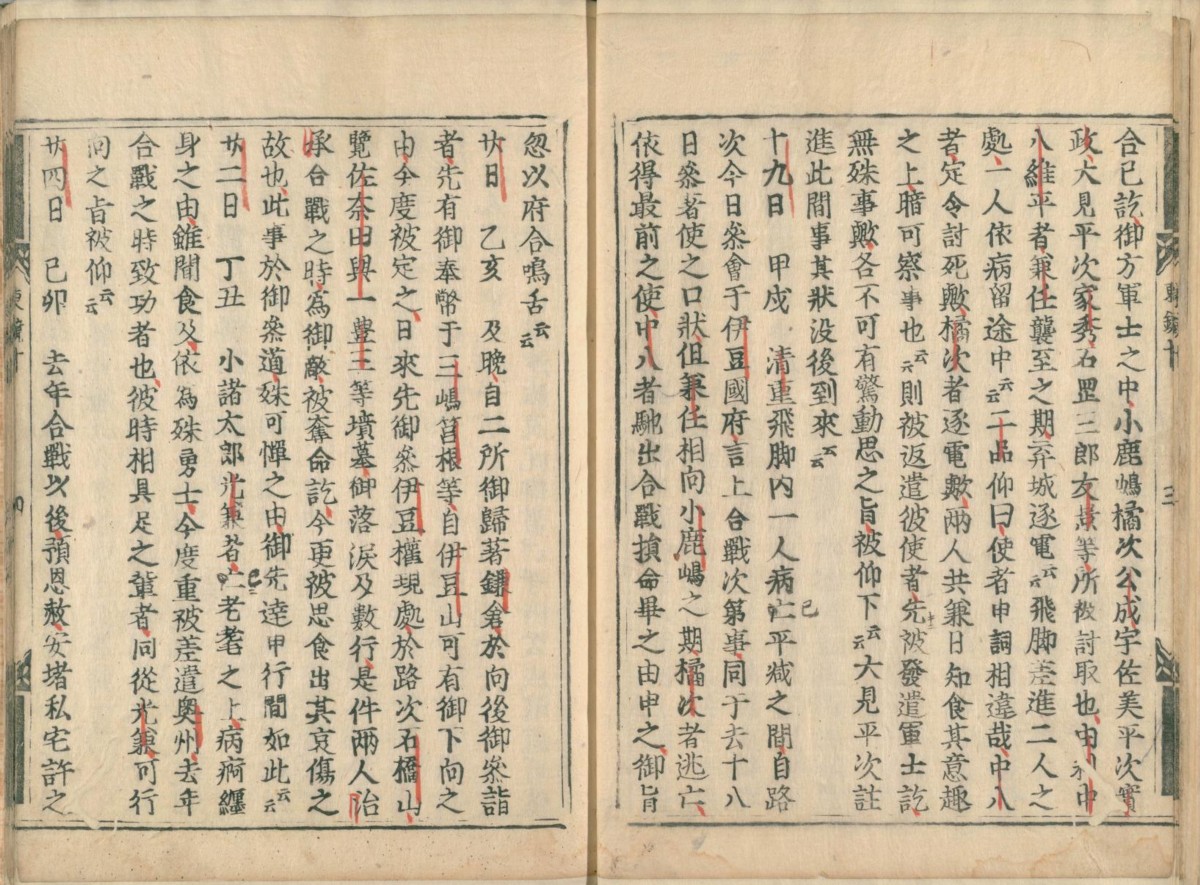 合已訖御方軍士之中小鹿嶋橘次公成宇佐美平次實
政大見平次家秀石罡三郎友景等所被討取也由利中
八維平者兼任襲至之期弃城逐電云云飛脚差進二人之
處一人依病留途中云云二品仰曰使者申詞相違哉中八
者定令討死歟橘次者逐電歟兩人共兼日知食其意趣
之上暗可察事也云云則被返遣彼使者先被發遣軍士訖
無殊事歟各不可有驚動思之旨被仰下云云大見平次註
進此間事其狀没後到來云云
十九日　甲戌　清重飛脚内一人病亡平臧之間自路
次今日參會于伊豆國府言上合戰次第事同于去十八
日參著使之口狀但兼任相向小鹿嶋之期橘次者逃亡
依得最前之使中八者馳出合戰損命畢之由申之御旨
忽以府合鳴舌云云
廿日　乙亥　及晚自二所御歸著鎌倉於向後御參詣
者先有御奉幣于三嶋筥根等自伊豆山可有御下向之
由今度被定之日來先御參伊豆權現處於路次石橋山
覽佐奈田與一豊三等墳墓御落淚及數行是件兩人治
承合戰之時爲御敵被奪命訖今更被思食出其哀傷之
故也此事於御參道殊可憚之由御先達申行間如此云云
廿二日　丁丑　小諸太郎光兼者仁老耄之上病痾纏
身之由雖聞食及依爲殊勇士今度重被差遣奥州去年
合戰之時致功者也彼時相具足之輩者同從光兼可行
向之旨被仰云云
廿四日　己卯　去年合戰以後預恩赦安堵私宅許之
東鑑十
三
四